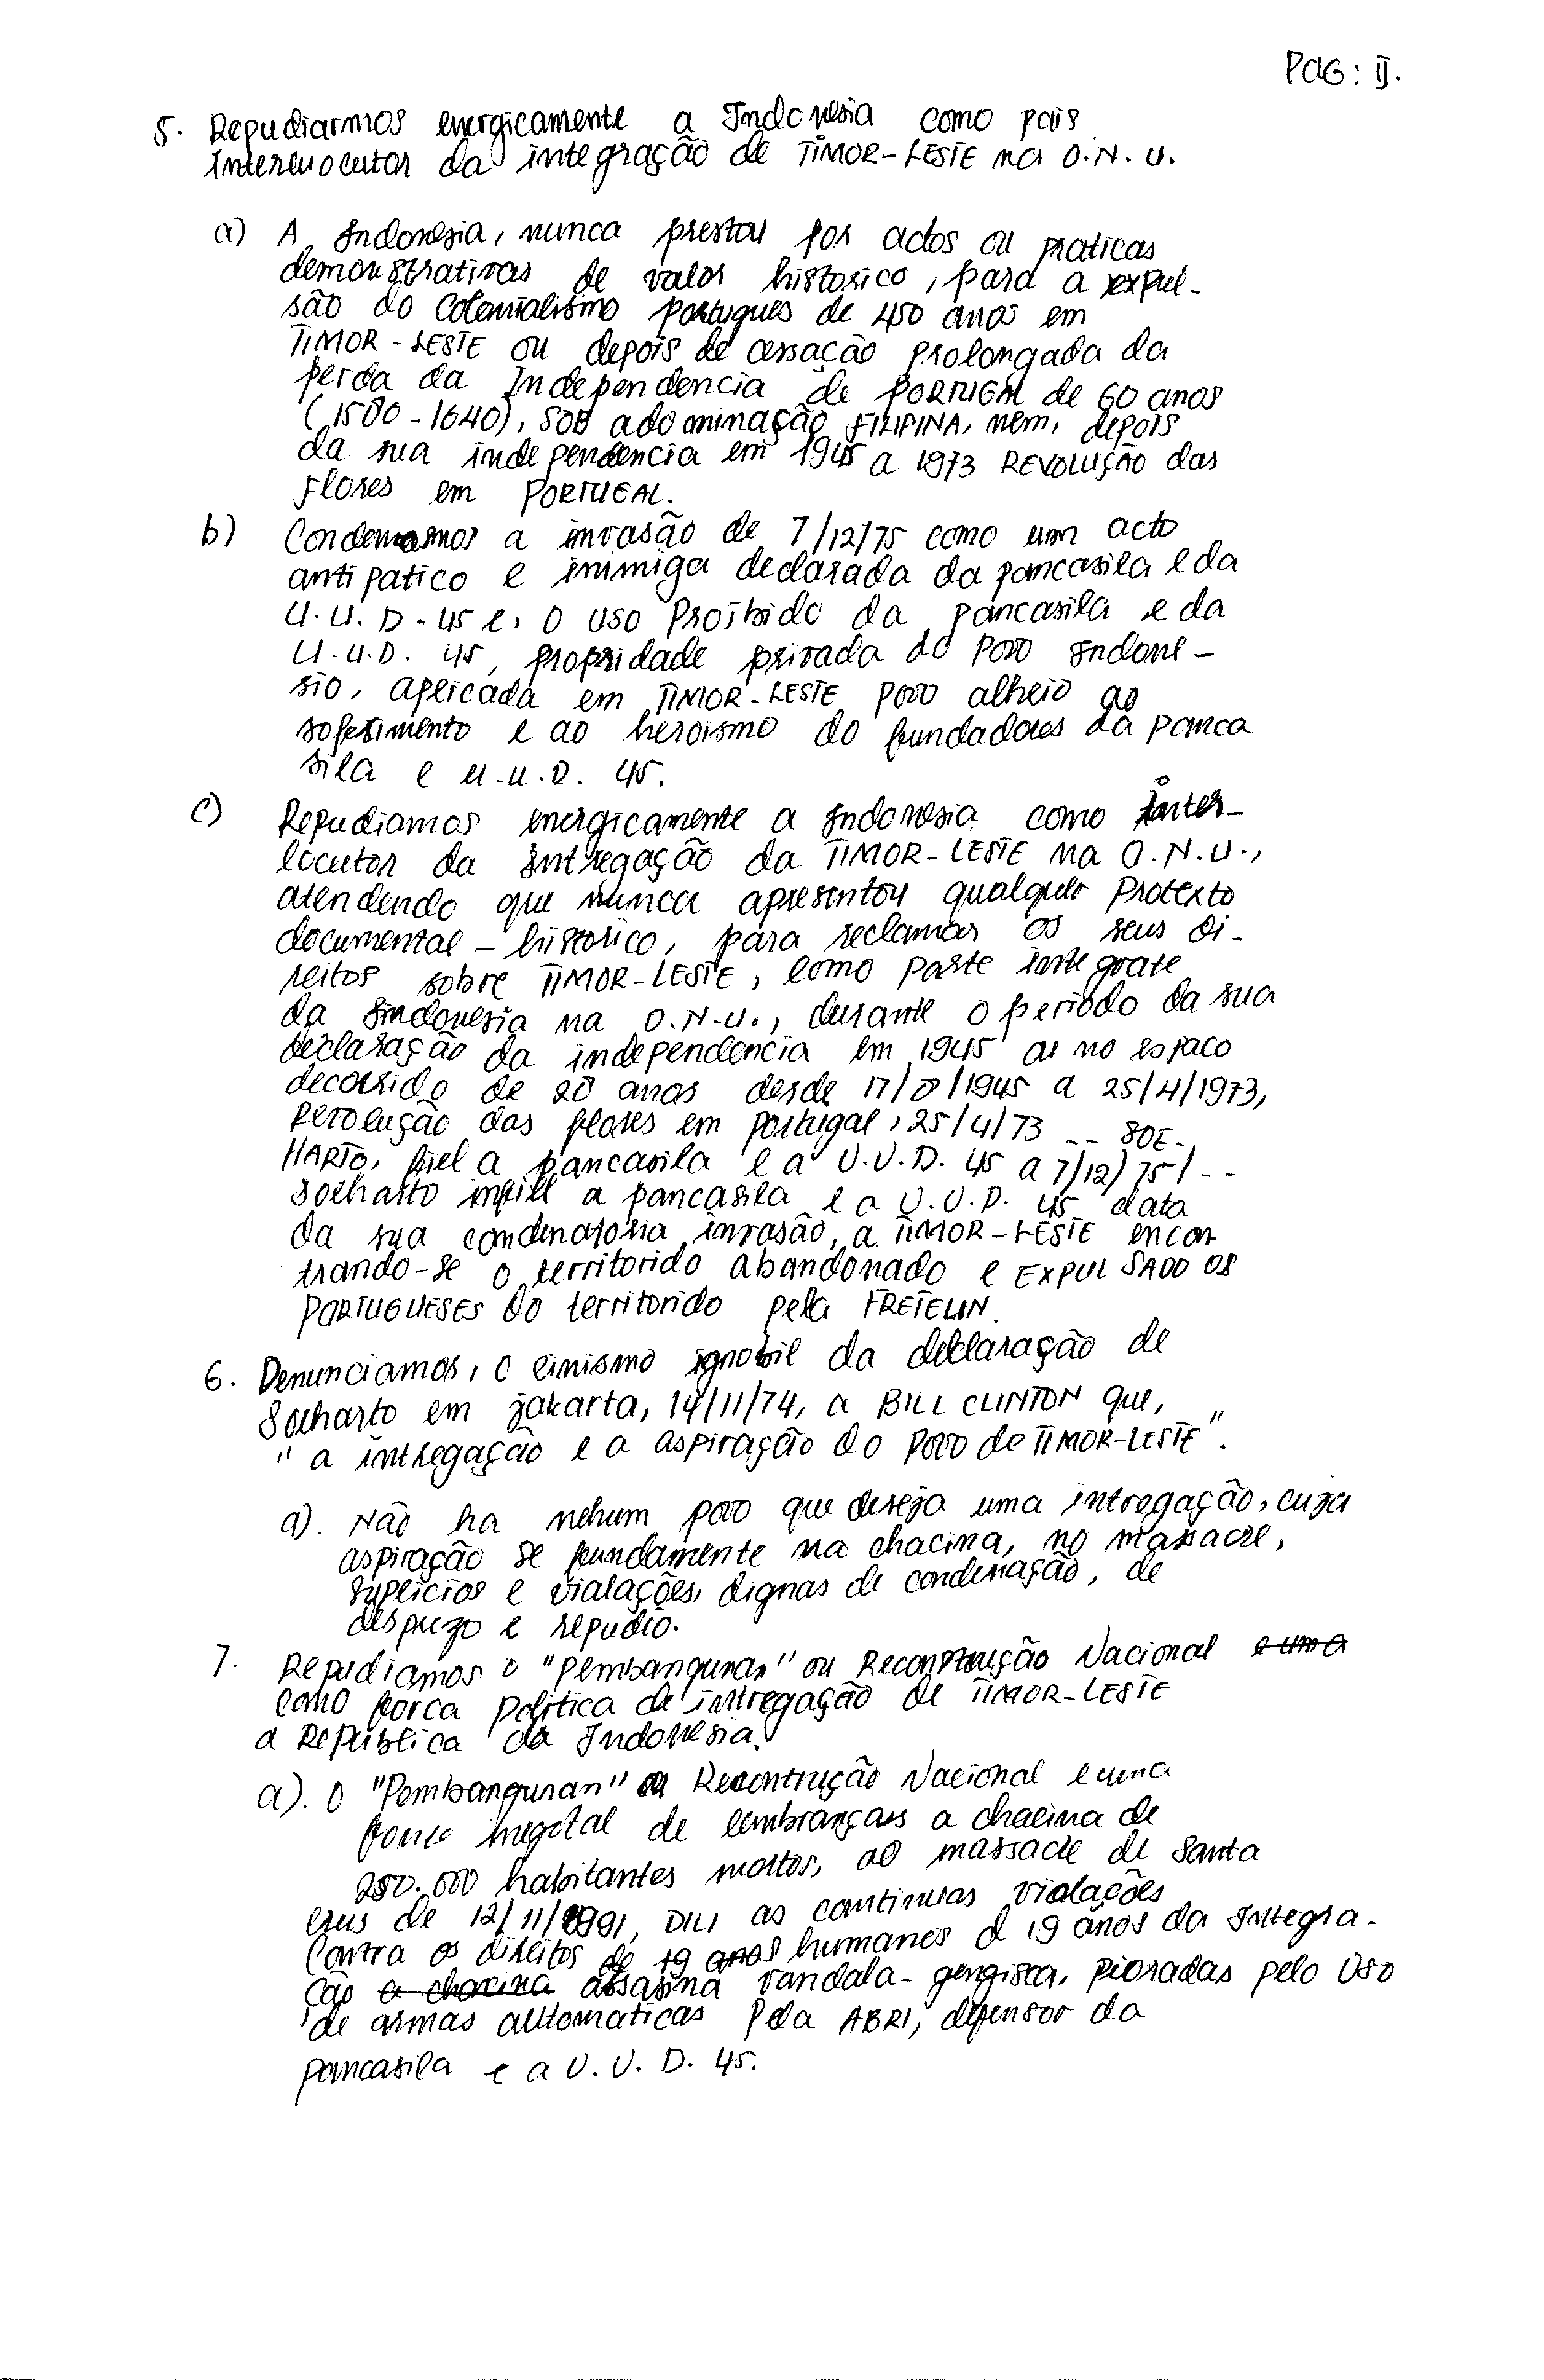 PAG: II.
5. Repudiarmos energicamente a Indonesia como pais
interluocutor da integração de TIMOR-LESTE na O.N.U.
a) A Indonesia, nunca prestou por actos ou praticas
demonstrativas de valor historico, para a expul-
são do Colonialismo portugues de 450 anos em
TIMOR-LESTE ou depois de cessação prolongada da
perda da Independencia de PORTUGAL de 60 anos
(1580-1640), SOB a dominação FILIPINA, nem, depois
da sua independencia em 1945 a 1973 REVOLUÇÃO das
Flores em PORTUGAL.
b) Condenamos a invasão de 7/12/75 como um acto
antipatico e inimiga declarada da pancasila e da
U.U.D-45 e, o uso Proibido da pancasila e da
U.U.D. 45, propridade privada do Povo Indone-
sio, aplicada em TIMOR-LESTE povo alheio ao
sofrimento e ao heroismo do fundadores da panca
sila e U.U.D. 45.
c) Repudiamos energicamente a Indonesia como inter-
locutor da intregação da TIMOR-LESTE na O.N.U.,
atendendo que nunca apresentou qualquer Protexto
documental-historico, para reclamar os seus di-
reitos sobre TIMOR-LESTE, como parte integrate
da Indonesia na O.N.U., durante o periodo da sua
declaração da independencia em 1945 ou no espaco
decorrido de 28 anos desde 17/8/1945 a 25/4/1973,
revolução das flores em portugal, 25/4/73 -- SOE-
HARTO, fiel a pancasila e a U.U.D. 45 a 7/12/75/--
Soeharto infiel a pancasila e a U.U.D. 45 data
da sua condenatoria invasão, a TIMOR-LESTE encon
trando-se o territorido abandonado e EXPULSADO OS
PORTUGUESES do territorido pela FRETELIN.
6. Denunciamos, o cinismo ignobil da declaração de
Soeharto em jakarta, 14/11/74, a BILL CLINTON que,
" a intregação e a aspiração do povo de TIMOR-LESTE".
a). Não ha nehum povo que deseja uma intregação, cuja
aspiração se fundamente na chacina, no masacre,
suplicios e violações, dignas de condenação, de
desprezo e repudio.
7. Repudiamos o "Pembangunan" ou Reconstruição Nacional e uma
como forca politica de intregação de TIMOR-LESTE
a Republica da Indonesia.
a). O "Pembangunan" ou Recontrução Nacional e uma
fonte inegotal de lembranças a chacina de
250.000 habitantes mortos, ao massacre de Santa
crus de 12/11/1991, DILI as continuas violações
Contra os direitos de 19 anos humanos d 19 anos da Integra-
ção a chacina assasina vandala-gengisca, pioradas pelo uso
de armas automaticas pela ABRI, defensor da
pancasila e a U.U.D. 45.